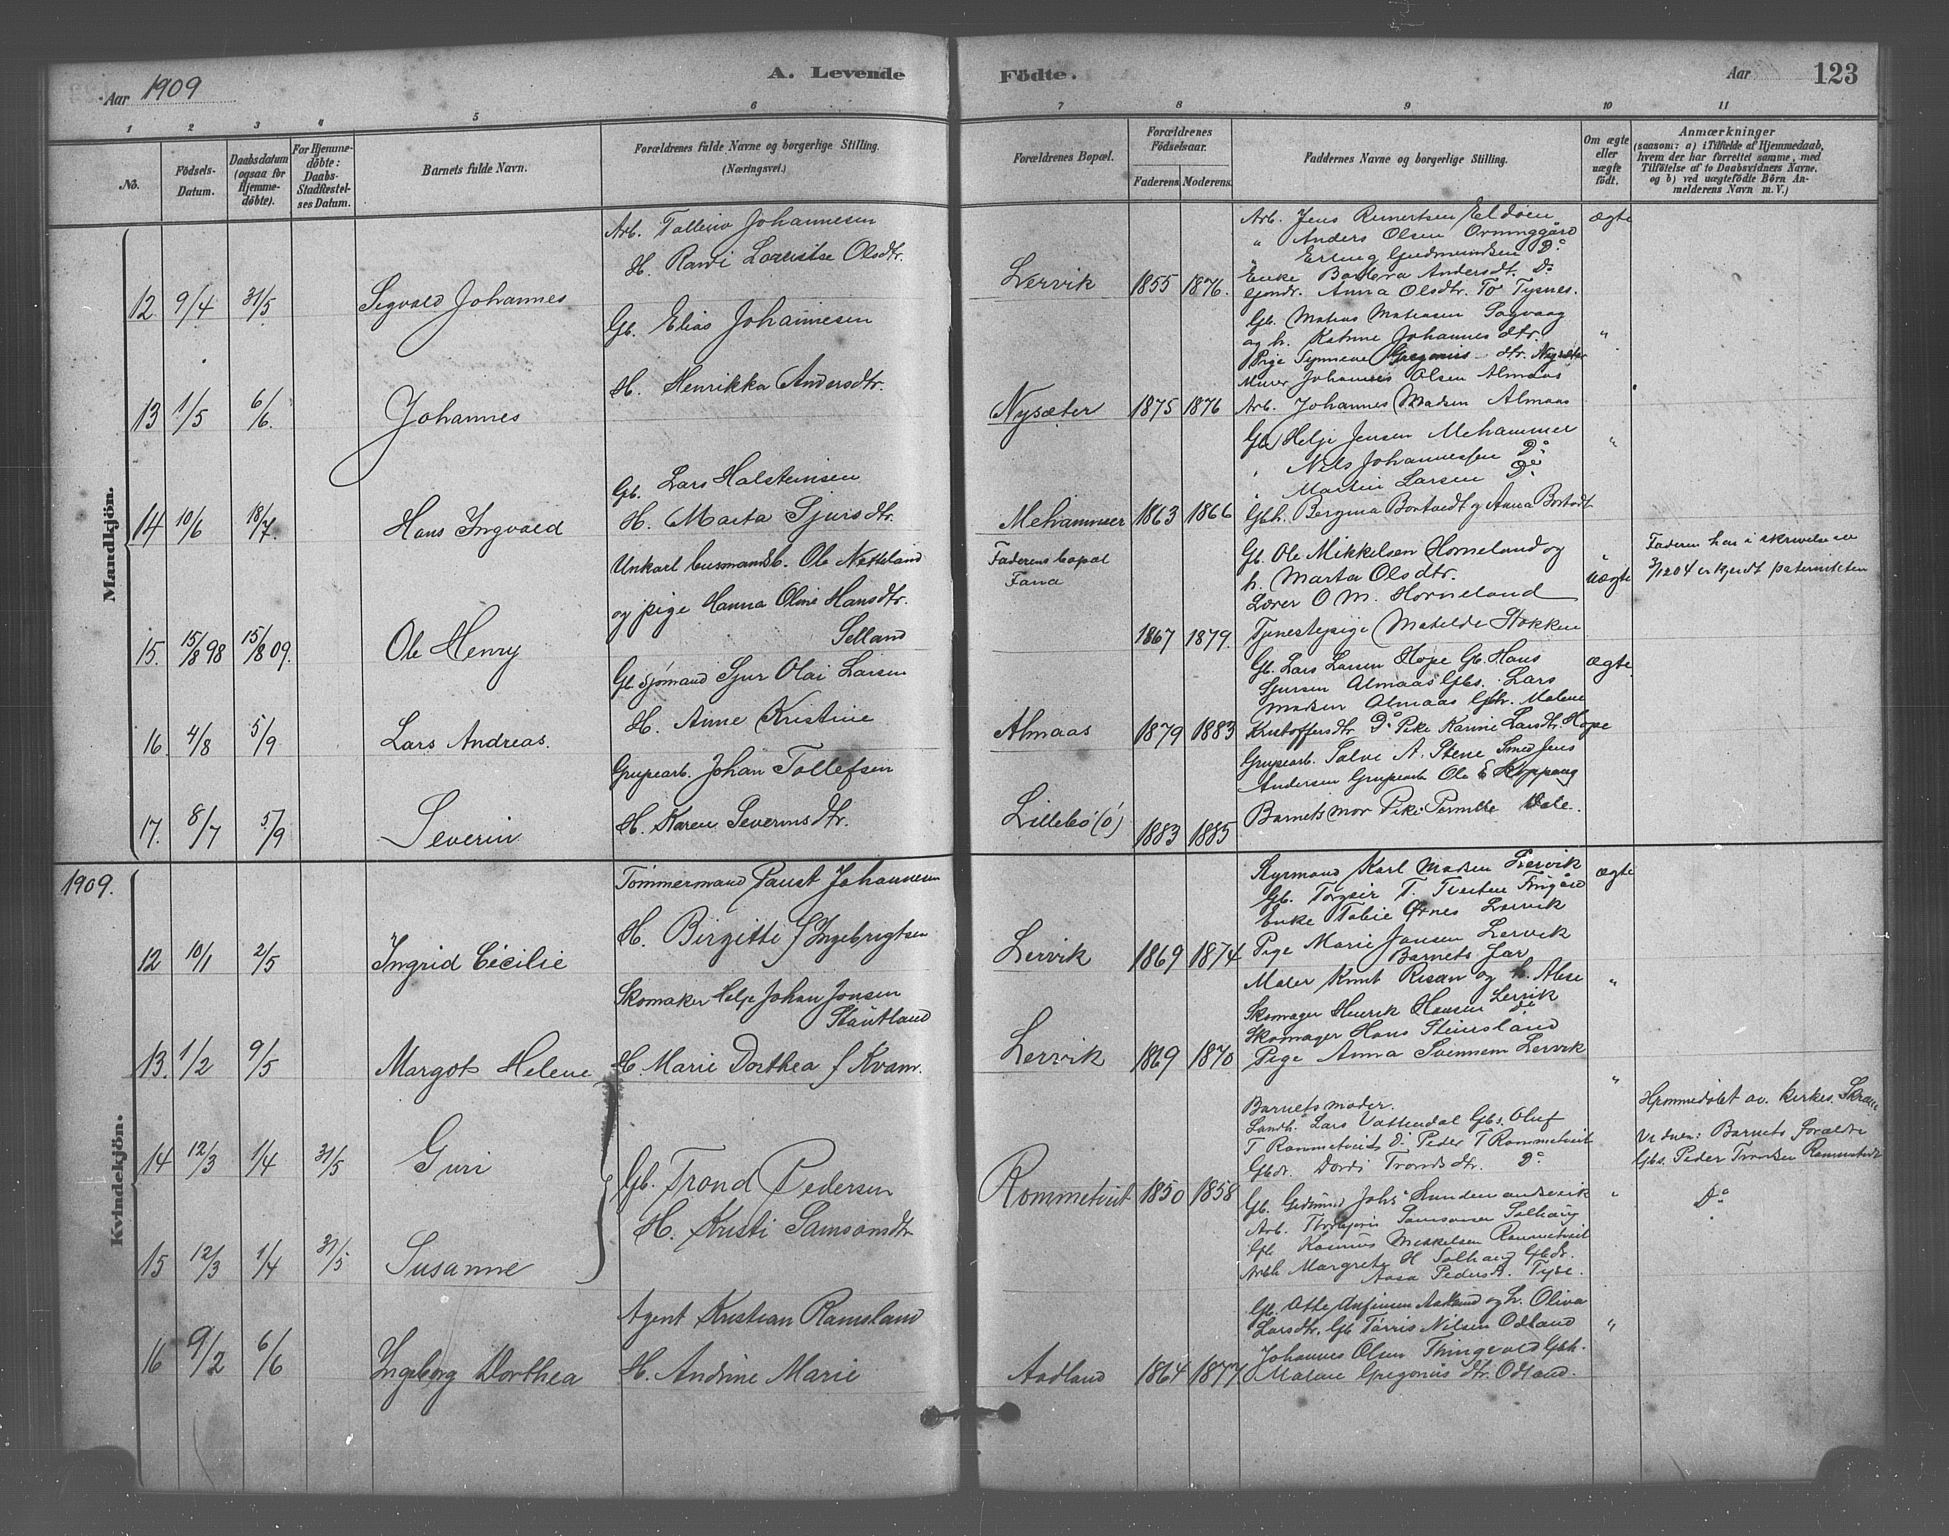 Aar 1909
A. Levende
Födte.
Aar
123
1 2 3 4 5 6 7 8 9 10 11
No.
Födsels-Datum.
Daabsdatum (ogsaa for Hjemmedöbte).
For Hjemmedöbte: Daabs-Stadfæstelses Datum.
Barnets fulde Navn.
Forældrenes fulde Navne og borgerlige Stilling. (Næringsvei.)
Forældrenes Bopæl.
Forældrenes Födselsaar.
Faderens. Moderens.
Faddernes Navne og borgerlige Stilling.
Om ægte eller uægte födt.
Anmærkninger
(saasom: a) i Tilfælde af Hjemmedaab, hvem der har forrettet samme, med Tilföielse af to Daabsvidners Navne, og b) ved uægtefödte Börn Anmelderens Navn m. V.)
Mandkjön.
12. 9/4 31/5 Sigvald Johannes
Arb. Johannesen
H. Olsdtr.
Lervik 1855 1876.
Arb. Jens Eldöen
" Anders Olsen
" Erling Gudmundsen Do
Enke Andersdt. Do
Anna Olsdtr. Tysnes.
ægte
13 1/5 6/6. Johannes
Gb. Elias Johannesen
H. Henrikka Andersdtr.
Nysæter 1875 1876
Gb. Matias Matiasen Sagvaag
og h. Johannesdtr.
Pige dtr. Nysæter
Murer Johannes Olsen Almaas
Arb. Johannes Madsen Almaas
"
14 10/6 18/7. Hans Ingvald
Gb. Lars Halsteinsen
H. Marta Sjursdtr.
Mehammer 1863 1866
Gb. Helje Jensen Mehammer
" Nils Johannessen Do
" Martin Larsen Do
Gbh. og Anna
"
15. 15/8 98 15/8 09. Ole Henry
Unkarl Ole Nætteland
og pige Hanna Oline Hansdtr.
Selland
Faderens bopæl
Fana
1867 1879.
Gb. Ole Mikkelsen Horneland og
h. Marta Olsdtr.
Lærer O M. Horneland
Tjenestepige Matilde Stokken
uægte
Faderen har i skrivelse av
3/12 04 erkjendt paterniteten
16. 4/8 5/9 Lars Andreas.
Gb. Sjömand Sjur Olai Larsen
H. Anne Kristine
Almaas 1879 1883
Gb. Lars Larsen Hope Gb. Hans
Sjursen Almaas Gbs. Lars
Madsen Almaas Malene
Kristoffersdtr Do Pike Karine Larsdtr. Hope
ægte
17. 8/7 5/9 Severin
Grupearb. Johan Tollefsen
H. Karen Severinsdtr.
Lillebö (ö) 1883 1885
Grupearb. Salve A. Stene Smed Jens
Andersen Grupearb Ole E
Barnets mor Pike Pernille Dale.
1909.
Kvindekjön.
12 10/1 2/5 Ingrid Cecilie
Tömmermand Johannesen
H. Birgitte f Ingebrigtsen
Lervik 1869 1874
Styrmand Karl Madsen Lervik
Gb. Torgeir T.
Enke Lervik
Pige Marie Jansen Lervik
Barnets far
ægte
13. 1/2 9/5 Margot Helene
Skomaker Helje Johan Jonsen
Stautland
H. Marie Dorthea f Kvam.
Lervik 1869 1870
Maler Knut Risan og h.
Skomager Henrik Hansen Lervik
Skomager Hans Steinsland Do
Pige Anna Lervik
"
14 12/3 1/4 31/5 Guri
Gb. Trond Pedersen
H. Kristi Samsonsdtr
Rommetveit 1850 1858
Barnets moder.
Landh. Lars Vattendal Gbs. Oluf
T Rommetveit Do Peder T Rommetveit
Gbdr. Dordi Trondsdtr. Do
"
Hjemmedöbt av kirkes.
Vidner: Barnets foreldre
Gbs. Peder Trondsen Rommetveit
15 12/3 1/4 31/5 Susanne
Gb. Johs
Arb. Torbjörn Samsonsen Solhaug
Gb. Rasmus Mikkelsen Rommetveit
Margrete H Solhaug Gbdr.
Aasa Pedersdt. Tyse.
"
Do
16 9/2 6/6 Ingeborg Dorthea
Agent Kristian Ramsland
H. Andrine Marie
Aadland 1864 1877
Gb. og h. Oliva
Larsdtr. Gb. Nilsen Odland
Johannes Olsen Tringvold Gbh.
Malene Gregoriusdtr. Odland.
"